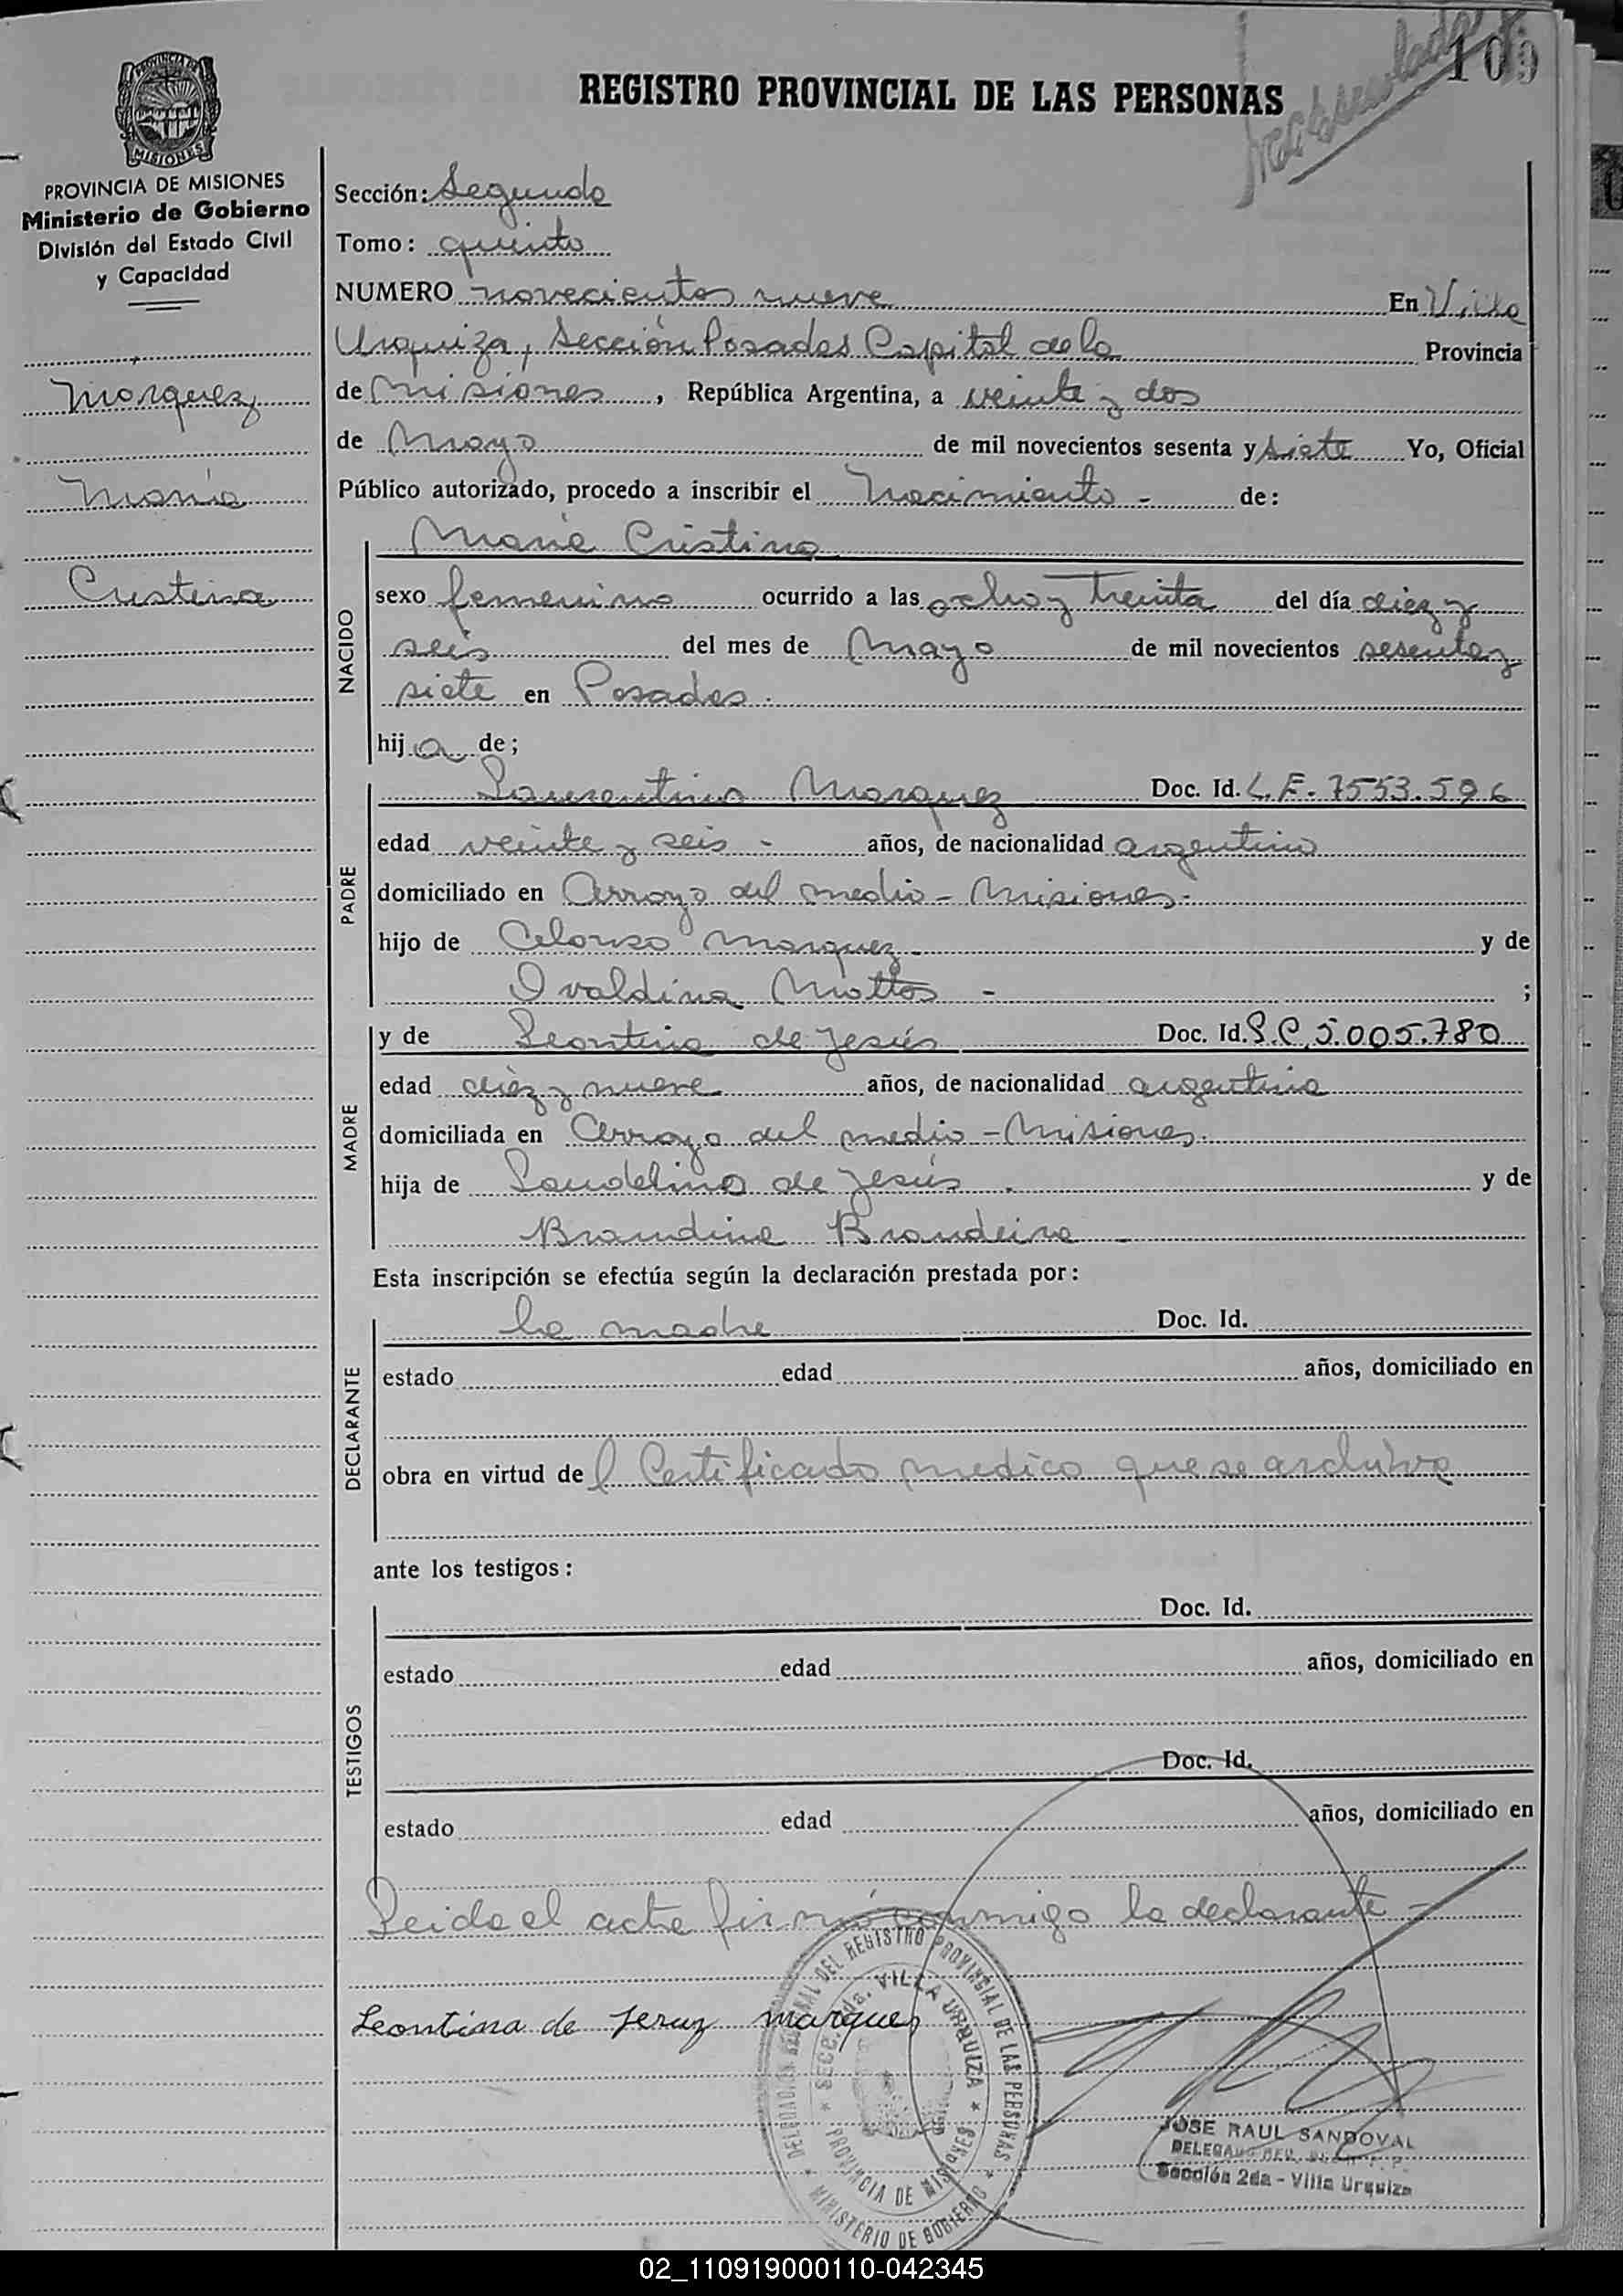 109
REGISTRO PROVINCIAL DE LAS PERSONAS
PROVINCIA DE MISIONES
Ministerio de Gobierno
División del Estado Civil
y Capacidad
Marquez
María
Cristina
Sección: Segunda
Tomo: quinto
NUMERO novecientos nueve En Villa
Urquiza, Sección Posadas Capital de la Provincia
de Misiones, República Argentina, a veinte y dos
de Mayo de mil novecientos sesenta y siete Yo, Oficial
Público autorizado, procedo a inscribir el Nacimiento - de:
NACIDO
María Cristina
sexo femenino ocurrido a las ocho y Treinta del día diez y
seis del mes de Mayo de mil novecientos sesenta y
siete en Posadas.
hija de;
PADRE
Laurentino Marquez Doc. Id. L.E. 7553.596
edad veinte y seis - años, de nacionalidad argentino
domiciliado en Arroyo del medio - Misiones.
hijo de Alonso Marquez - y de
Ovaldina Mattos - ;
MADRE
y de Leontina de Jesús Doc. Id. L.C. 5.005.780
edad diez y nueve años, de nacionalidad argentina
domiciliada en Arroyo del medio - Misiones.
hija de Laudelino de Jesús . y de
Brandina Brandeira -
Esta inscripción se efectúa según la declaración prestada por:
DECLARANTE
la madre Doc. Id.
estado edad años, domiciliado en
obra en virtud del Certificado medico que se archiva
ante los testigos:
TESTIGOS
Doc. Id.
estado edad años, domiciliado en
Doc. Id.
estado edad años, domiciliado en
Leida el acta firmó conmigo la declarante -
Leontina de Jeruz marquez
DELEGACIÓN DEL REGISTRO PROVINCIAL DE LAS PERSONAS
MINISTERIO DE GOBIERNO
Secc. 2da. VILLA URQUIZA
PROVINCIA DE MISIONES
JOSE RAUL SANDOVAL
Sección 2da - Villa Urquiza
02_110919000110-042345